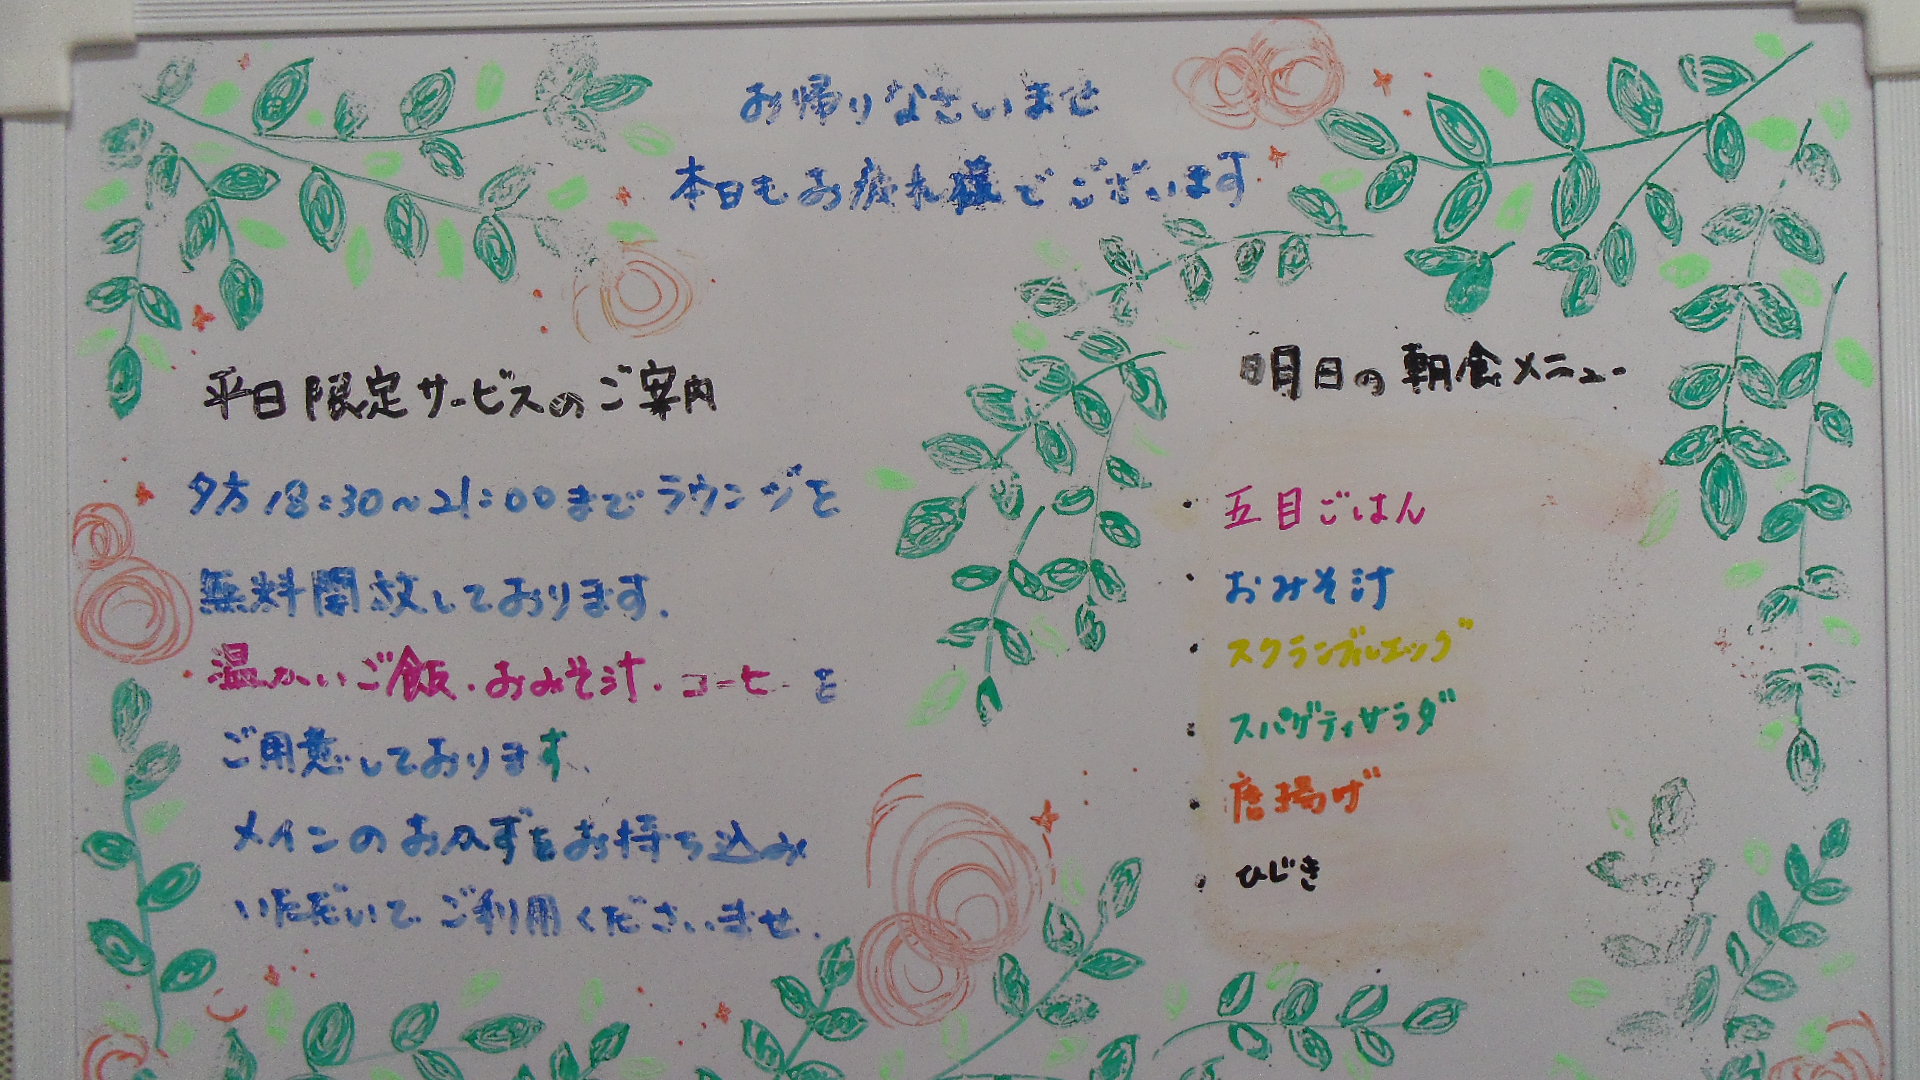 お帰りなさいませ
本日もお疲れ様でございます
平日限定サービスのご案内
夕方18:30~21:00までラウンジを
無料開放しております.
温かいご飯.おみそ汁.コーヒーを
ご用意しております.
メインのおかずをお持ち込み
いただいてご利用くださいませ.
明日の朝食メニュー
・五目ごはん
・おみそ汁
・スクランブルエッグ
・スパゲティサラダ
・唐揚げ
・ひじき